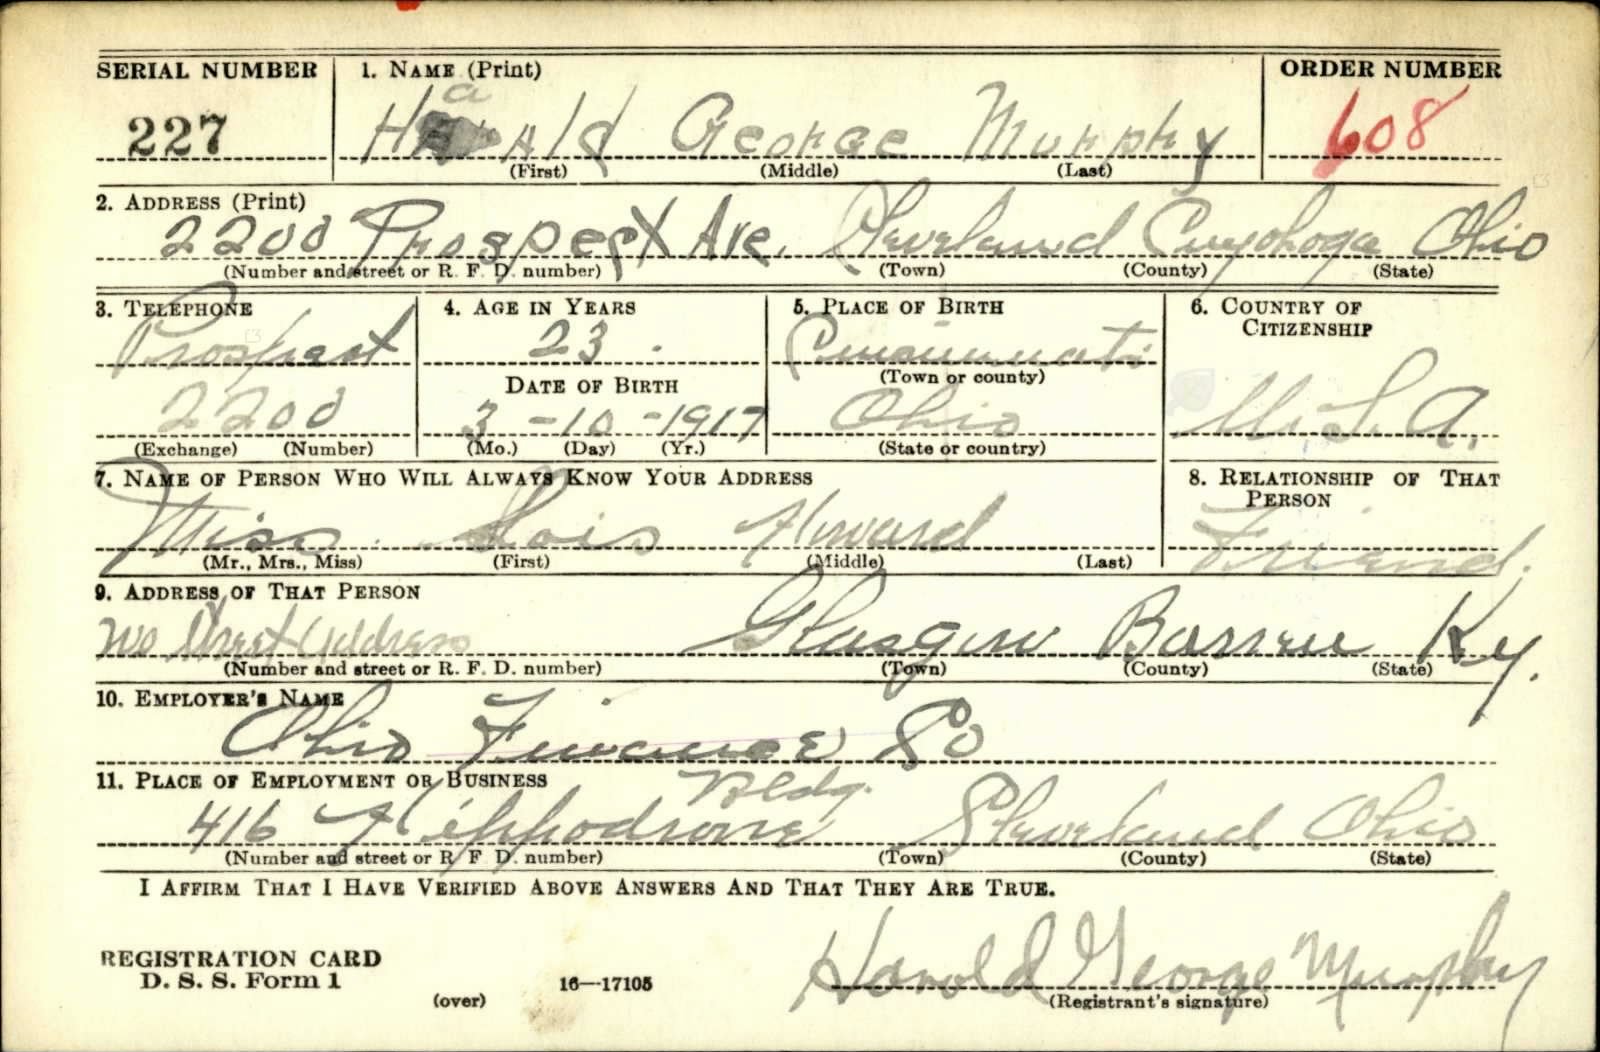 SERIAL NUMBER 1. NAME (Print) ORDER NUMBER
227 Harald George Murphy 608
(First) (Middle) (Last)
2. ADDRESS (Print)
2200 Prospect Ave. Cleveland Cuyohoga Ohio
(Number and street or R. F. D. number) (Town) (County) (State)
3. TELEPHONE 4. AGE IN YEARS 5. PLACE OF BIRTH 6. COUNTRY OF CITIZENSHIP
Prospect 23. Cincinnati
(Town or county)
DATE OF BIRTH
2200 3-10-1917 Ohio U.S.A.
(Exchange) (Number) (Mo.) (Day) (Yr.) (State or country)
7. NAME OF PERSON WHO WILL ALWAYS KNOW YOUR ADDRESS 8. RELATIONSHIP OF THAT PERSON
Miss. Lois Howard Friend.
(Mr., Mrs., Miss) (First) (Middle) (Last)
9. ADDRESS OF THAT PERSON
No Street Address Glasgow Barren Ky.
(Number and street or R. F. D. number) (Town) (County) (State)
10. EMPLOYER'S NAME
Ohio Finance Co
11. PLACE OF EMPLOYMENT OR BUSINESS
416 Hippodrome Bldg. Cleveland Ohio
(Number and street or R. F. D. number) (Town) (County) (State)
I AFFIRM THAT I HAVE VERIFIED ABOVE ANSWERS AND THAT THEY ARE TRUE.
Harold George Murphy
REGISTRATION CARD
D. S. S. Form 1 (over) 16—17105 (Registrant's signature)